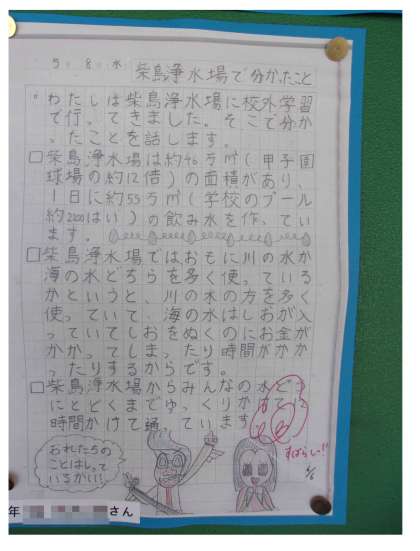 5 8 水 柴島浄水場で分かったこと
・わたしは柴島浄水場に校外学習
で行ってきました。そこで分か
ったことを話します。
□柴島浄水場は約46万㎡(甲子園
球場の約12倍)の面積があり、
1日に約55万㎥(学校のプール
約2200はい)の飲み水を作ってい
ます。
□柴島浄水場ではおもに川の水か
海の水どちらを多く使っている
かというと、川の水の方を多く
使っていて、海の水はしおが入
っていてしおをぬくのにお金が
かかってしまったり時間がかか
ったりするからです。
□柴島浄水場からみんなの水どう
にとどくまでゆっくりかけて
時間かけて通っています
すばらしい!!
おれたちの
ことはしって
いるかい!
年
さん